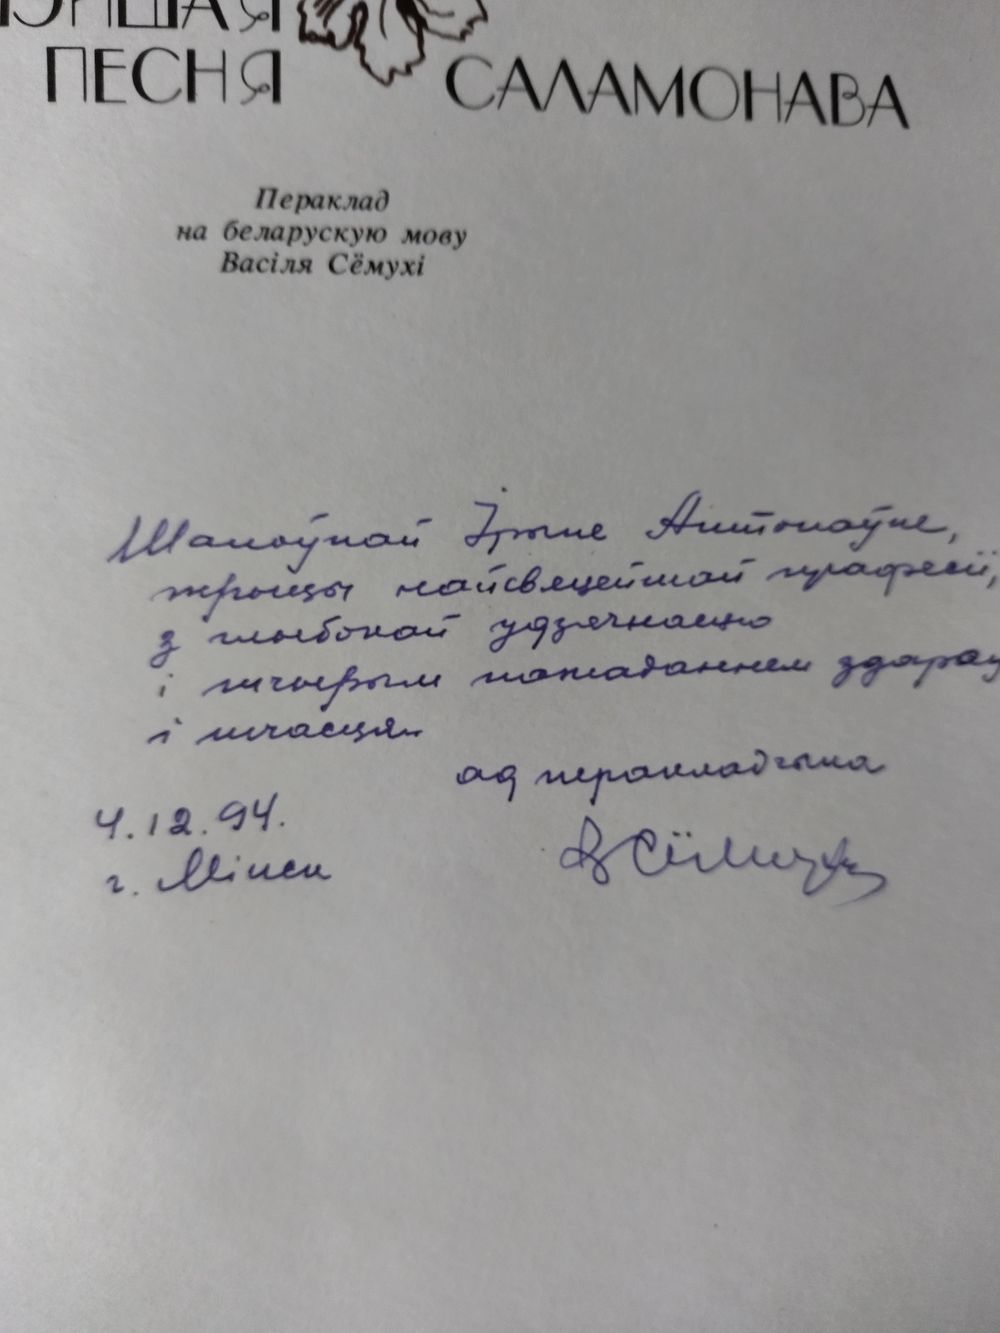 ПЕСНЯ САЛАМОНАВА
Пераклад
на беларускую мову
Васіля Сёмухі
Шаноўнай Ірыне Антонаўне,
жрыцы найсвяцейшай прафесіі,
з глыбокай удзячнасцю
і шчырым пажаданнем здароў
і шчасця
ад перакладчыка
4.12.94.
г. Мінск
В Сёмуха